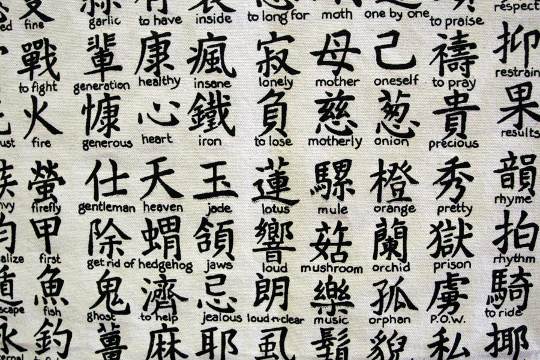 fine garlic to have inside to long for moth one by one to praise respect
戰 輩 康 瘋 寂 母 己 禱 抑
to fight generation healthy insane lonely mother oneself to pray restrain
火 慷 心 鐵 負 慈 葱 貴 果
fire generous heart iron to lose motherly onion precious results
螢 仕 天 玉 蓮 騾 橙 秀 韻
firefly gentleman heaven jade lotus mule orange pretty rhyme
甲 除 蝟 頜 響 菇 蘭 獄 拍
first get rid of hedgehog jaws loud mushroom orchid prison rhythm
魚 鬼 濟 忌 朗 樂 孤 虜 騎
fish ghost to help jealous loud n clear music orphan P.O.W. to ride
釣 薑 麻 耶 虱 私